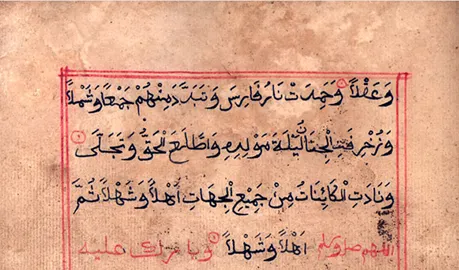 وَعَقْلاً وَخَمِدَتْ نَارُ فَارِسَ وَتَبَدَّدَ مِنْهُمْ جَمْعًا وَشَمْلاً
وَزُخْرِفَتِ الْجِنَانُ لَيْلَةَ مَوْلِدِهِ وَاطَّلَعَ الْحَقُّ وَتَجَلَّى
وَنَادَتِ الْكَائِنَاتُ مِنْ جَمِيْعِ الْجِهَاتِ اَهْلاً وَسَهْلاً ثُمَّ
اَهْلاً وَسَهْلاً اللهم صل وسلم وبارك عليه